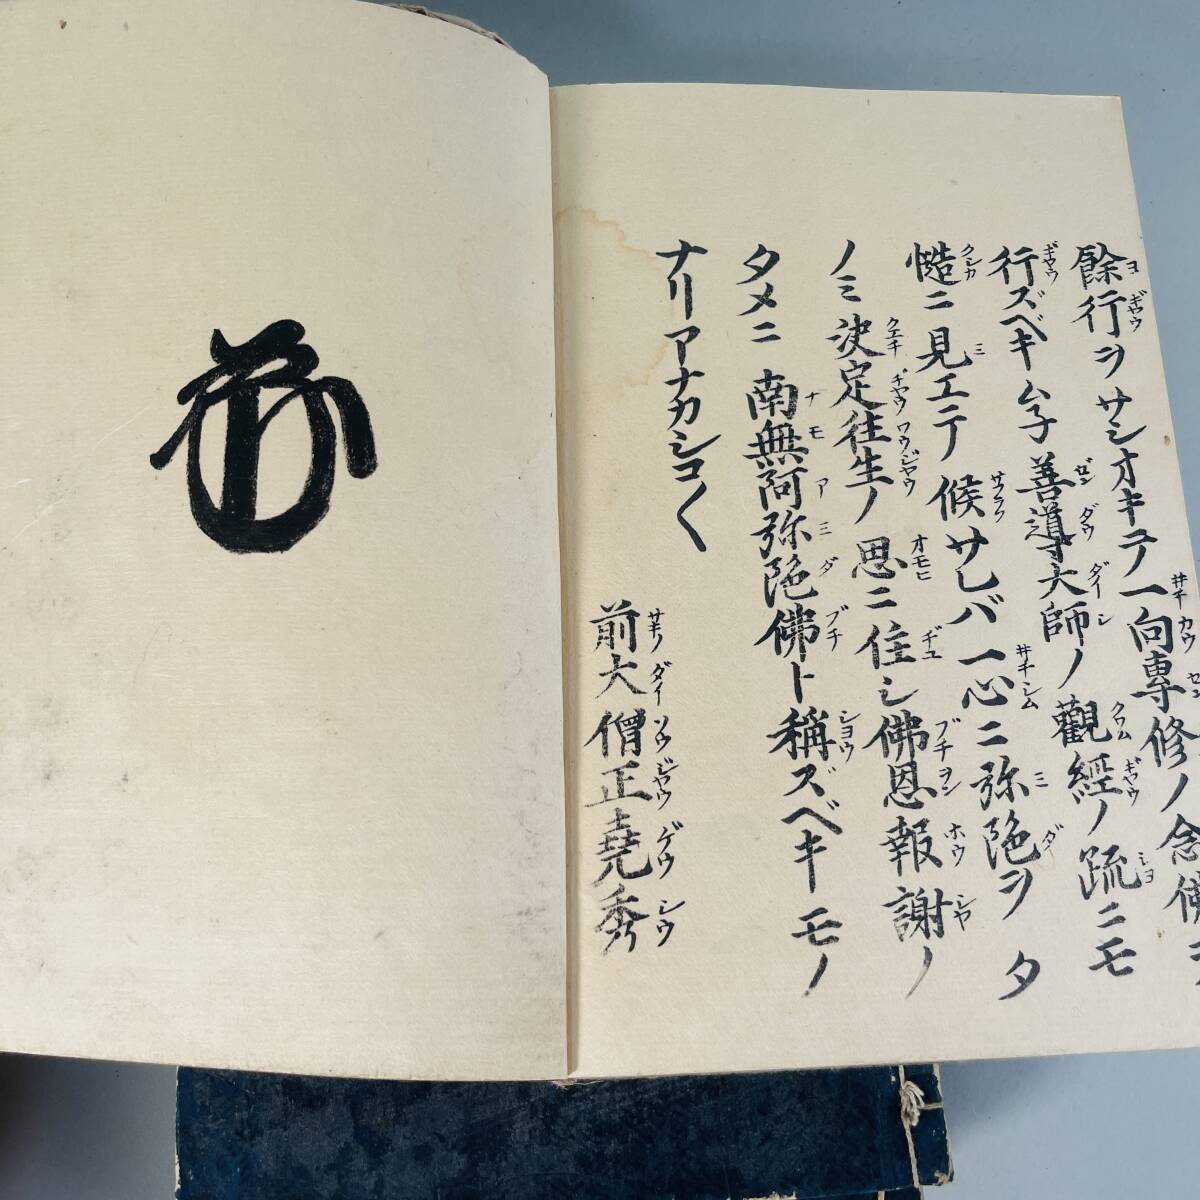 餘行ヲサシオキテ一向專修ノ念佛ヲ
行ズベキムネ善導大師ノ觀經ノ疏ニモ
慥ニ見エテ候サレバ一心ニ弥陀ヲタ
ノミ決定往生ノ思ニ住シ佛恩報謝ノ
タメニ南無阿弥陀佛ト稱ズベキモノ
ナリアナカシコ〱
前大僧正堯秀